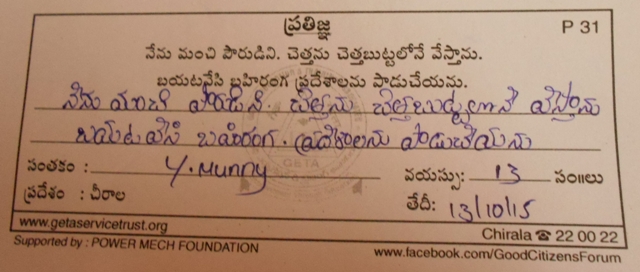 ప్రతిజ్ఞ
P 31
నేను మంచి పౌరుడిని. చెత్తను చెత్తబుట్టలోనే వేస్తాను.
బయటవేసి బహిరంగ ప్రదేశాలను పాడుచేయను.
నేను మంచి పౌరుడిని. చెత్తను చెత్తబుట్టలోనే వేస్తాను
బయటవేసి బహిరంగ. ప్రదేశాలను పాడుచేయను
సంతకం : Y. Munny వయస్సు: 13 సం॥లు
ప్రదేశం : చీరాల తేదీ: 13/10/15
GETA
www.getaservicetrust.org Chirala ☎ 22 00 22
Supported by : POWER MECH FOUNDATION www.facebook.com/GoodCitizensForum